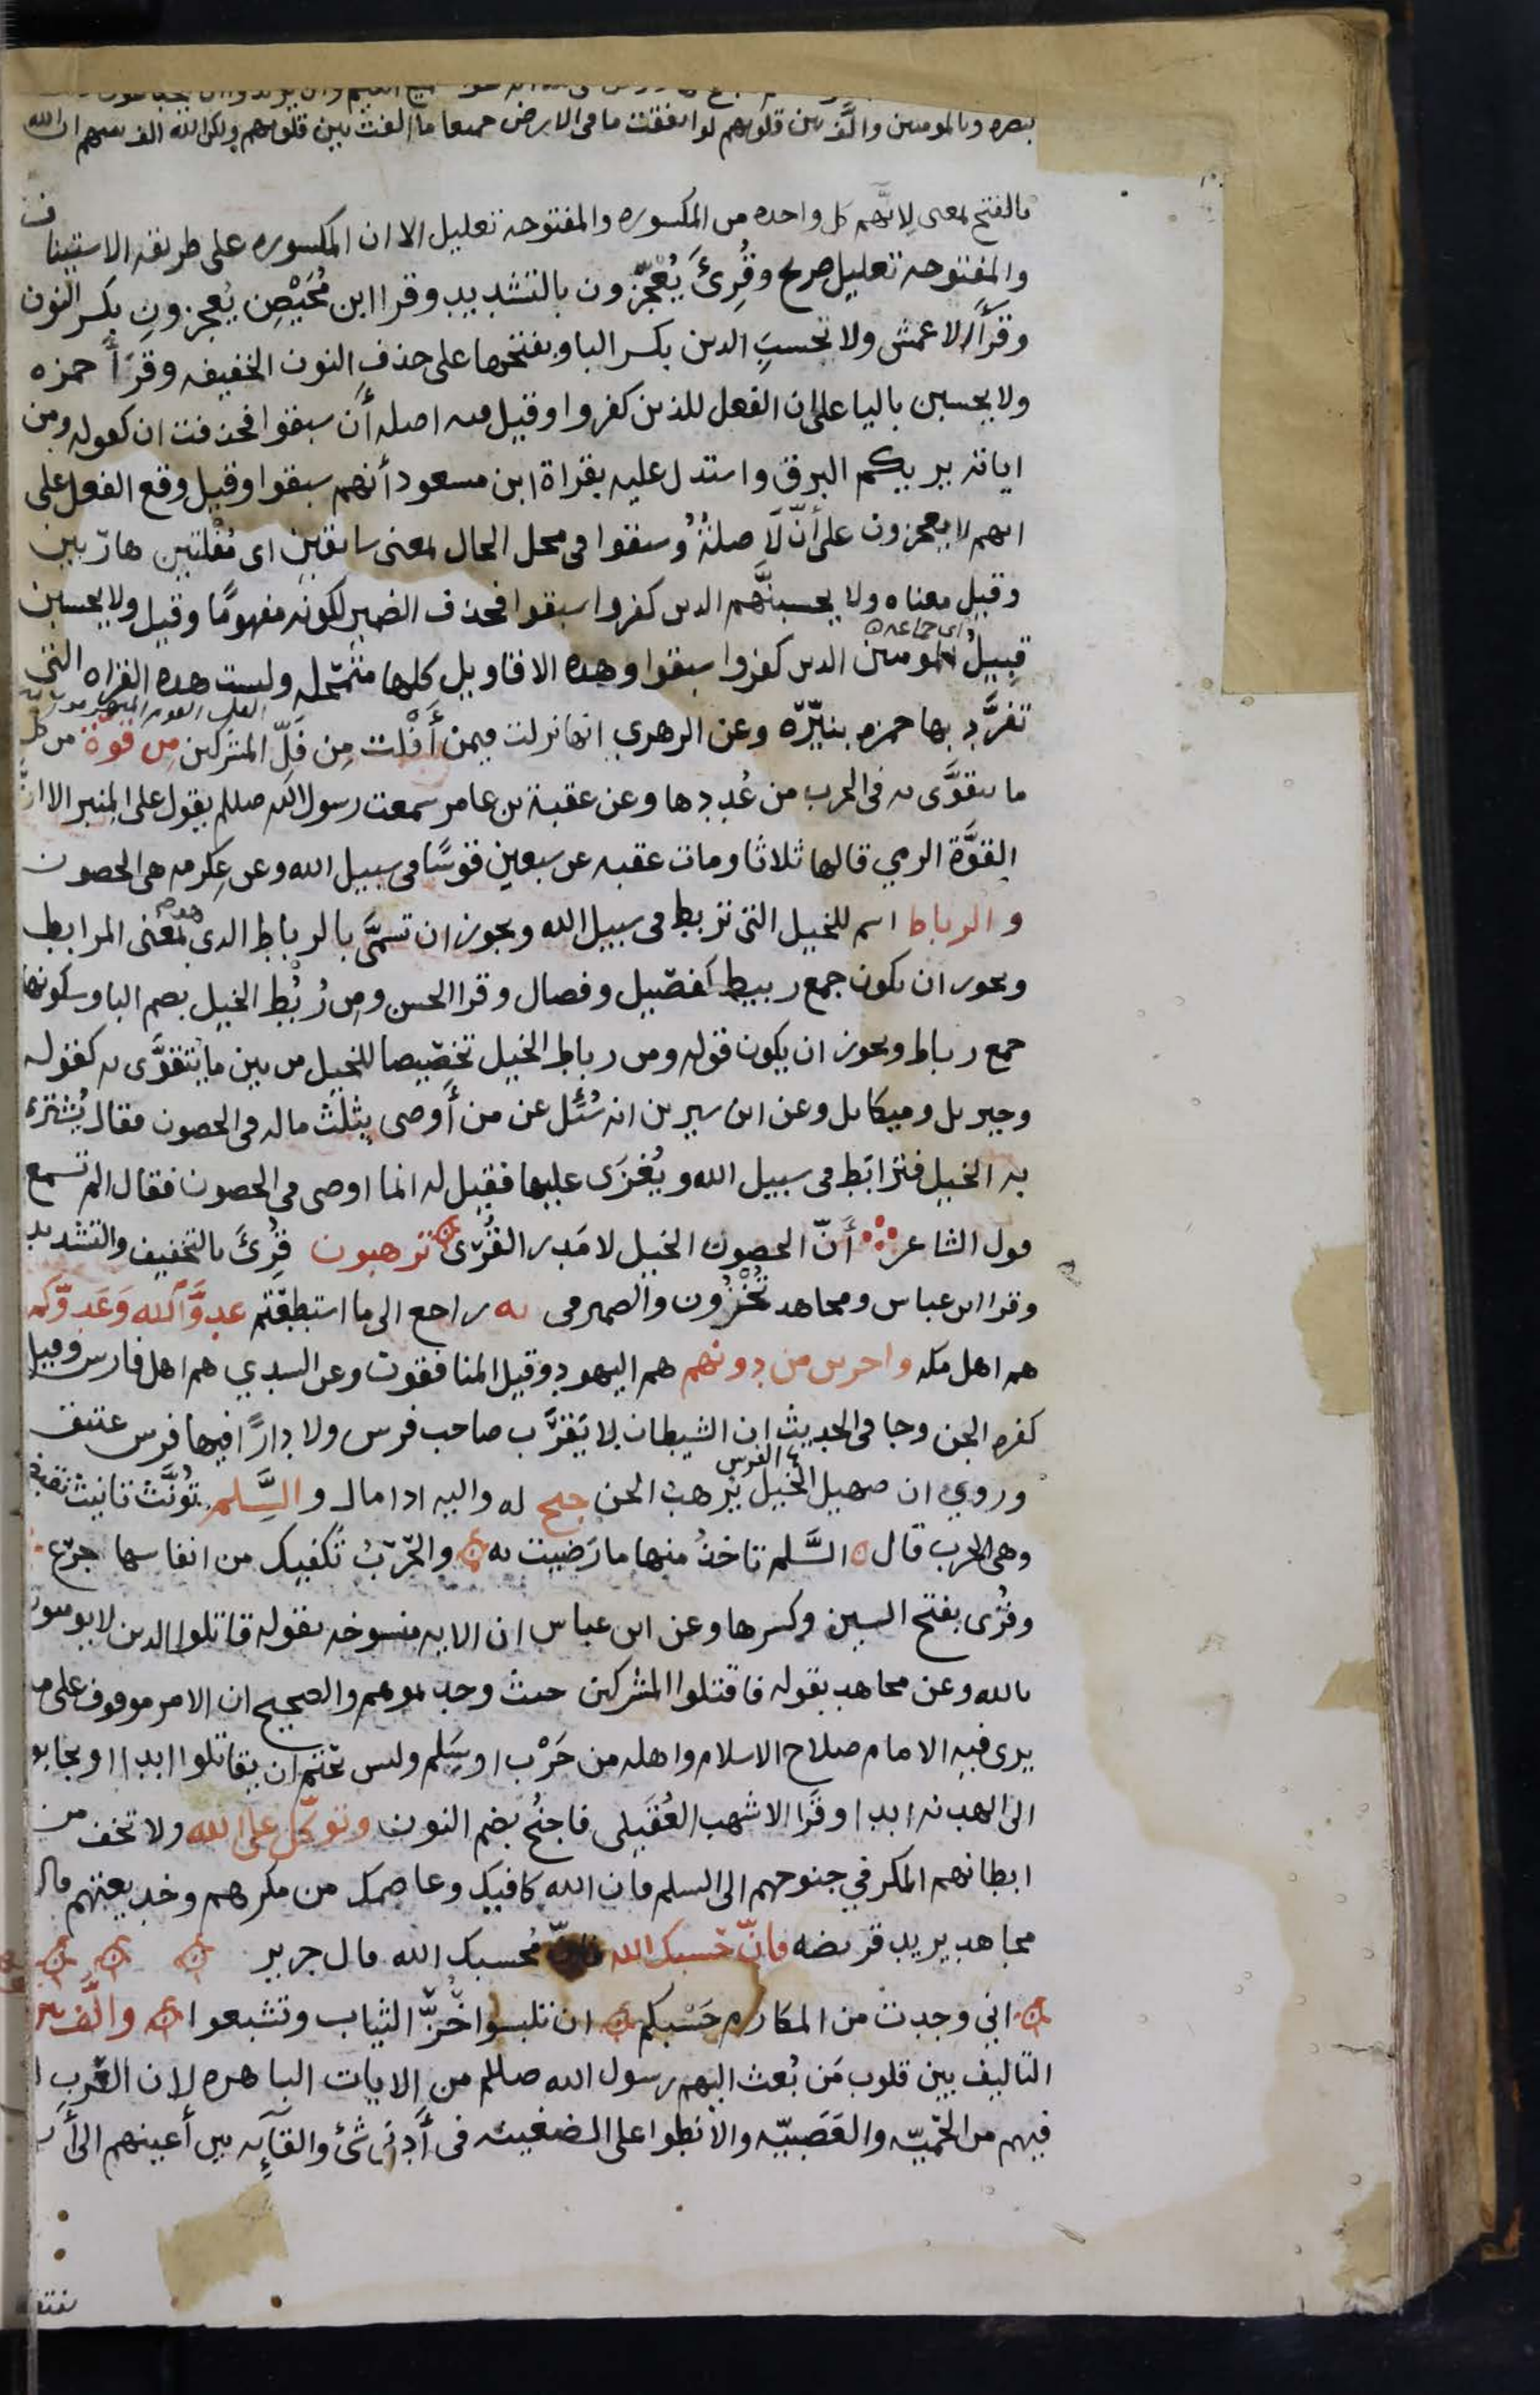 بنصره وبالمومنين والَّف بين قلوبهم لو انفقت ما في الارض جميعا ما الفت بين قلوبهم ولكن الله الف بينهم ان الله
بالفتح بمعنى لِانَّهم كل واحده من المكسوره والمفتوحه تعليل الا ان المكسوره على طريقه الاستيناف
والمفتوحه تعليل صريح وقُرِئَ يُعَجّزون بالتشديد وقرا ابن مُحَيْصِن يُعجزونِ بكسر النون
وقرَأ الاعمش ولا تحسبَِ الذين بكسر البا وبفتحها على حذفِ النون الخفيفه وقرَأ حمزه
ولا يحسبن باليا على ان الفعل للذين كفروا وقيل فيه اصله أن سبقوا فحذفت ان كقوله ومن
اياته يريكم البرق واستدل عليه بقراة ابن مسعود أنهم سبقوا وقيل وقع الفعل على
انهم لا يعجزون على أنّ لَا صلةٌ وسبقوا في محل الحال بمعنى سابقين اى مُفْلتين هاربين
وقيل معناه ولا يحسبنَّهم الذين كفروا سبقوا فحذف الضمير لكونه مفهومًا وقيل ولا يحسبن
اى جماعه
قبيلُ المومنين الذين كفروا سبقوا وهذه الاقاويل كلها متمحّله وليست هذه القراه التى
تفرَّد بها حمزه بنيّرَه وعن الزهري انها نزلت فيمن أَفْلت مِن فَلِّ المشركين مِن قوّة من كل
ما يتقوَّى به فى الحرب من عُددها وعن عقبة بن عامر سمعت رسول الله صللم يقول على المنبر الا انَّ
القوَّة الرمي قالها ثلاثا ومات عقبه عن سبعين قوسًا في سبيل الله وعن عِكرمه هى الحصون
والرباط اسم للخيل التى تربط في سبيل الله ويجوز ان تسمَّى بالرباط الذى هو بمعنى المرابطه
ويجوز ان يكون جمع ربيط كفصيل وفصال وقرا الحسن ومن رُبُْط الخيل بضم البا وسكونها
جمع رباط ويجوز ان يكون قوله ومن رباط الخيل تخصيصا للخيل من بين ما يتقوَّى به كقوله
وجبريل وميكايل وعن ابن سيرين انه سُئل عن من أَوصى بثلث ماله فى الحصون فقال يُشترى
به الخيل فترابَط في سبيل الله ويُغزَى عليها فقيل له انما اوصى في الحصون فقال الم تسمع
قول الشاعر أنّ الحصون الخيل لا مَدر القُرَى ترهبون قُرِئَ بالتخفيف والتشديد
وقرا ابن عباس ومجاهد تُخْزُون والضمير في به راجع الى ما استطعتم عدوَّ الله وَعَدوَّكم
هم اهل مكه واخرين من دونهم هم اليهود وقيل المنافقون وعن السدي هم اهل فارس وقيل
كفره الجن وجا فى الحديث ان الشيطان لا يَقْرَب صاحب فرس ولا دارًا فيها فرس عتيق
وروي ان صهيل الخيل يُرهب الجن جنح له واليه اذا مال والسَّلم تُؤنَّث تانيث نقيضها
وهى الحرب قال السَّلم تاخذُ منها ما رَضيت به والحَرْبُ تَكفيك من انفاسها جُرَع
وقُرِى بفتح السين وكسرها وعن ابن عباس ان الايه منسوخه بقوله قاتلوا الذين لا يومنون
بالله وعن مجاهد بقوله فاقتلوا المشركين حيث وجدتموهم والصحيح ان الامر موقوف على ما
يرى فيه الامام صلاح الاسلام واهله من حَرْب او سَِلم وليس بحَتْم ان يقاتلوا ابدا او يجابوا
الى الهدنه ابدا وقَرا الاشهب العُقَيلى فاجنُح بضم النون وتوكّل على الله ولا تخف من
ابطانهم المكر في جنوحهم الى السلم فان الله كافيك وعاصمك من مكرهم وخديعتهم قال
مجاهد يريد قريضه فانّ حَسبك الله فانّ مُحسبك الله قال جرير
اني وجدت من المكارم حَسْبكم ان تلبسوا خَزَّ الثياب وتشبعوا والَّف بين
التاليف بين قلوب مَن بُعث اليهم رسول الله صللم من الايات الباهره لان العَرب
فيهم من الحَميّه والعَصَبيّه والانطوا على الضغينه فى أدنى شئ والقآيِه بين أعينهم الى أن